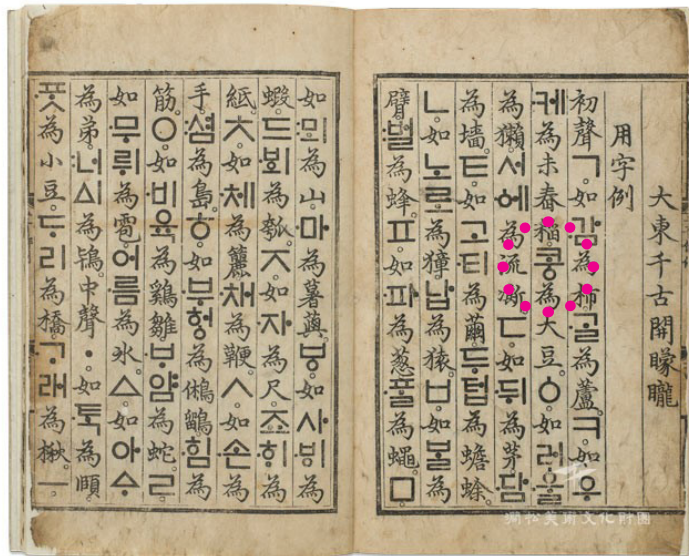 大東千古開矇矓
用字例
初聲ㄱ如:감為柿·ᄀᆞᆯ為蘆。ㅋ如우
·케為未舂稻。콩為大豆。ㆁ如러·울
為獺。서·에為流凘。ㄷ如·뒤為茅·담
為墻。ㅌ如고·티為繭。두텁為蟾蜍。
ㄴ如노로為獐。납為猿。ㅂ如ᄇᆞᆯ為
臂。:벌為蜂。ㅍ如·파為葱。·ᄑᆞᆯ為蠅。ㅁ
如:뫼為山。·마為薯藇。ㅸ如사·ᄫᅵ為
蝦。드·ᄫᅴ為瓠。ㅈ如·자為尺。죠·ᄒᆡ為
紙。ㅊ如·체為麓。·채為鞭。ㅅ如·손為
手。:셤為島。ㅎ如·부헝為鵂鶹。·힘為
筋。ㅇ如·비육為鷄雛。·ᄇᆞ얌為蛇。ㄹ
如·무뤼為雹。어·름為氷。ㅿ如아ᅀᆞ
為弟。:너ᅀᅵ為鴇。中聲ㆍ如·ᄐᆞᆨ為頤
·ᄑᆞᆺ為小豆。ᄃᆞ리為橋。·ᄀᆞ래為楸。ㅡ
澗松美術文化財團